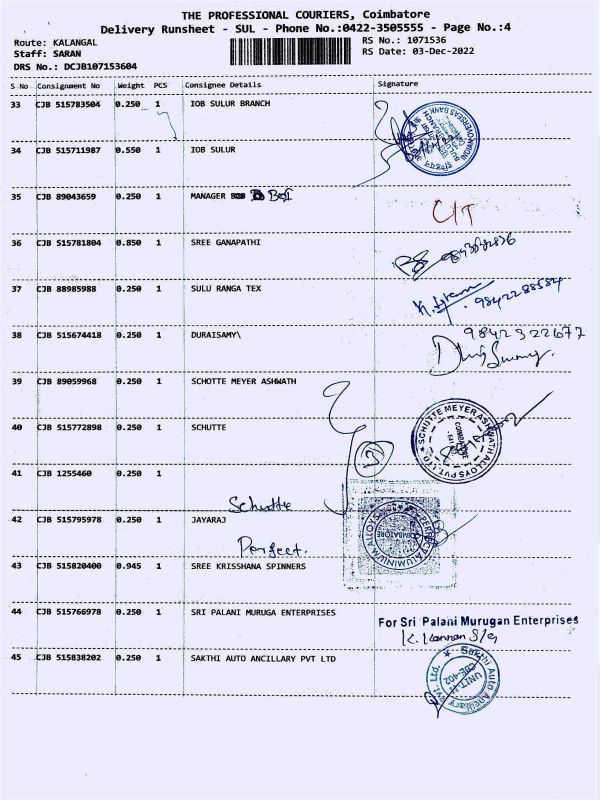 THE PROFESSIONAL COURIERS, Coimbatore
Delivery Runsheet - SUL - Phone No.:0422-3505555 - Page No.:4
Route: KALANGAL
RS No.: 1071536
Staff: SARAN
RS Date: 03-Dec-2022
DRS No.: DCJB107153604
S No Consignment No Weight PCS Consignee Details Signature
33 CJB 515783504 0.250 1 IOB SULUR BRANCH
34 CJB 515711987 0.550 1 IOB SULUR
35 CJB 89043659 0.250 1 MANAGER BOI
C/T
36 CJB 515781804 0.850 1 SREE GANAPATHI
37 CJB 88985988 0.250 1 SULU RANGA TEX
9842288584
38 CJB 515674418 0.250 1 DURAISAMY\
9842322677
39 CJB 89059968 0.250 1 SCHOTTE MEYER ASHWATH
40 CJB 515772898 0.250 1 SCHUTTE
SCHUTTE MEYER ASHWATH ALLOYS PVT. LTD.
COIMBATORE
41 CJB 1255460 0.250 1
Schutte
42 CJB 515795978 0.250 1 JAYARAJ
PERFECT ALUMINIUM ALLOYS
COIMBATORE
Perfect.
43 CJB 515820400 0.945 1 SREE KRISSHANA SPINNERS
44 CJB 515766978 0.250 1 SRI PALANI MURUGA ENTERPRISES
For Sri Palani Murugan Enterprises
K. Kannan
45 CJB 515838202 0.250 1 SAKTHI AUTO ANCILLARY PVT LTD
Sakthi Auto Ancillary Pvt. Ltd.
UNIT-II
CBE-402